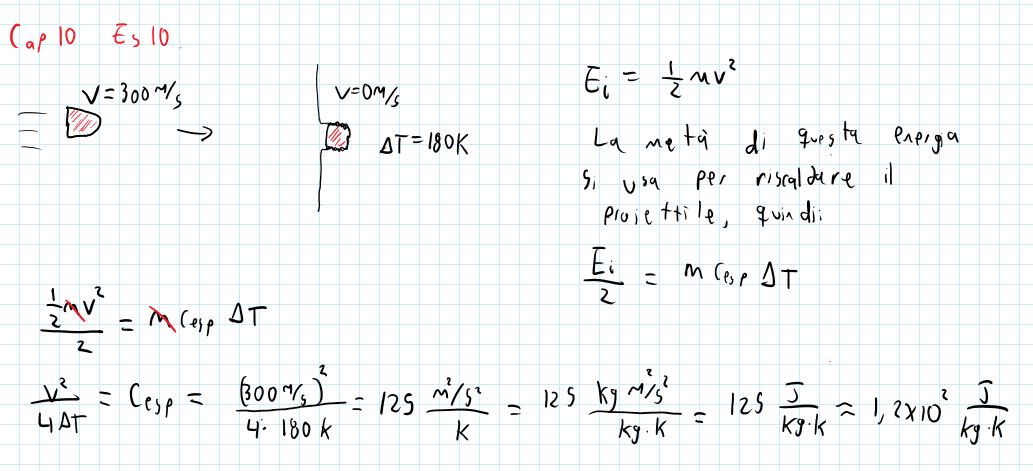 Cap 10 Es 10
V = 300 m/s
V = 0 m/s
ΔT = 180 K
E_i = 1/2 m v²
La metà di questa energia
si usa per riscaldare il
proiettile, quindi:
E_i/2 = m C_esp ΔT
(1/2 m v²)/2 = m C_esp ΔT
v²/(4ΔT) = C_esp = (300 m/s)²/(4 · 180 K) = 125 (m²/s²)/K = 125 (kg m²/s²)/(kg·K) = 125 J/(kg·K) ≈ 1,2×10² J/(kg·K)